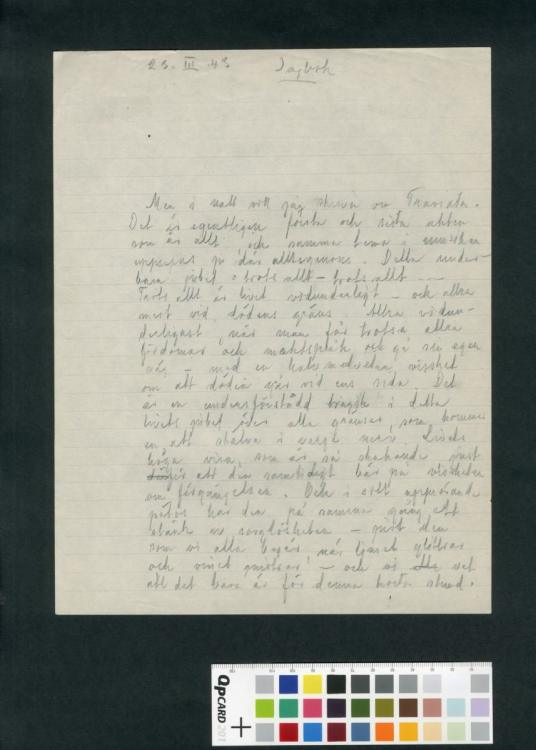 23. III 43 Dagbok
Men i natt vill jag skriva om Traviata.
Det är egentligen första och sista akten
som är allt, och samma tema i musiken
upprepas ju där allt igenom. Detta under-
bara jubel trots allt – trots allt ---
Trots allt är livet vidunderligt – och allra
mest vid dödens gräns. Allra vidun-
derligast, när man får trotsa alla
fördomar och maktspråk och gå sin egen
väg – med en halvt medveten visshet
om att döden går vid ens sida. Det
är en underförstådd tragik i detta
livets jubel över alla gränser, som kommer
en att skälva i varje nerv. Livets
höga visa, som är så skakande just
därför att den samtidigt bär på vissheten
om förgängelsen. Och i sitt upprörande
patos har den på samma gång ett
stänk av sorglösheten – just den
som vi alla begär, när ljuset glittrar
och vinet gnistrar – och vi vet
att det bara är för denna korta stund.
QpCARD 201